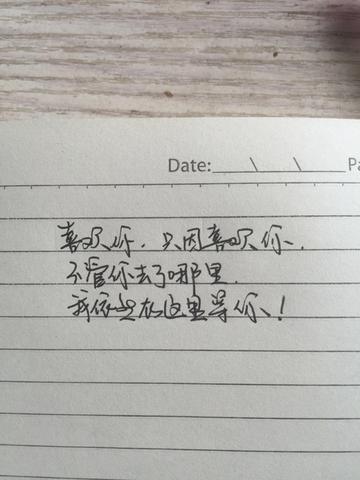 Date: \ \ Pa
喜欢你，只因喜欢你、
不管你去了哪里.
我依然在这里等你、！